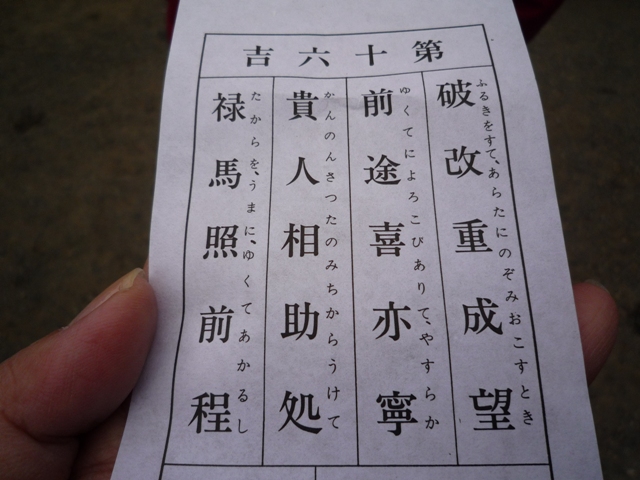 第十六吉
破改重成望
ふるきをすて、あらたにのぞみおこすとき
前途喜亦寧
ゆくてによろこびありて、やすらか
貴人相助処
かんのんさつたのみちからうけて
禄馬照前程
たからを、うまに、ゆくてあかるし